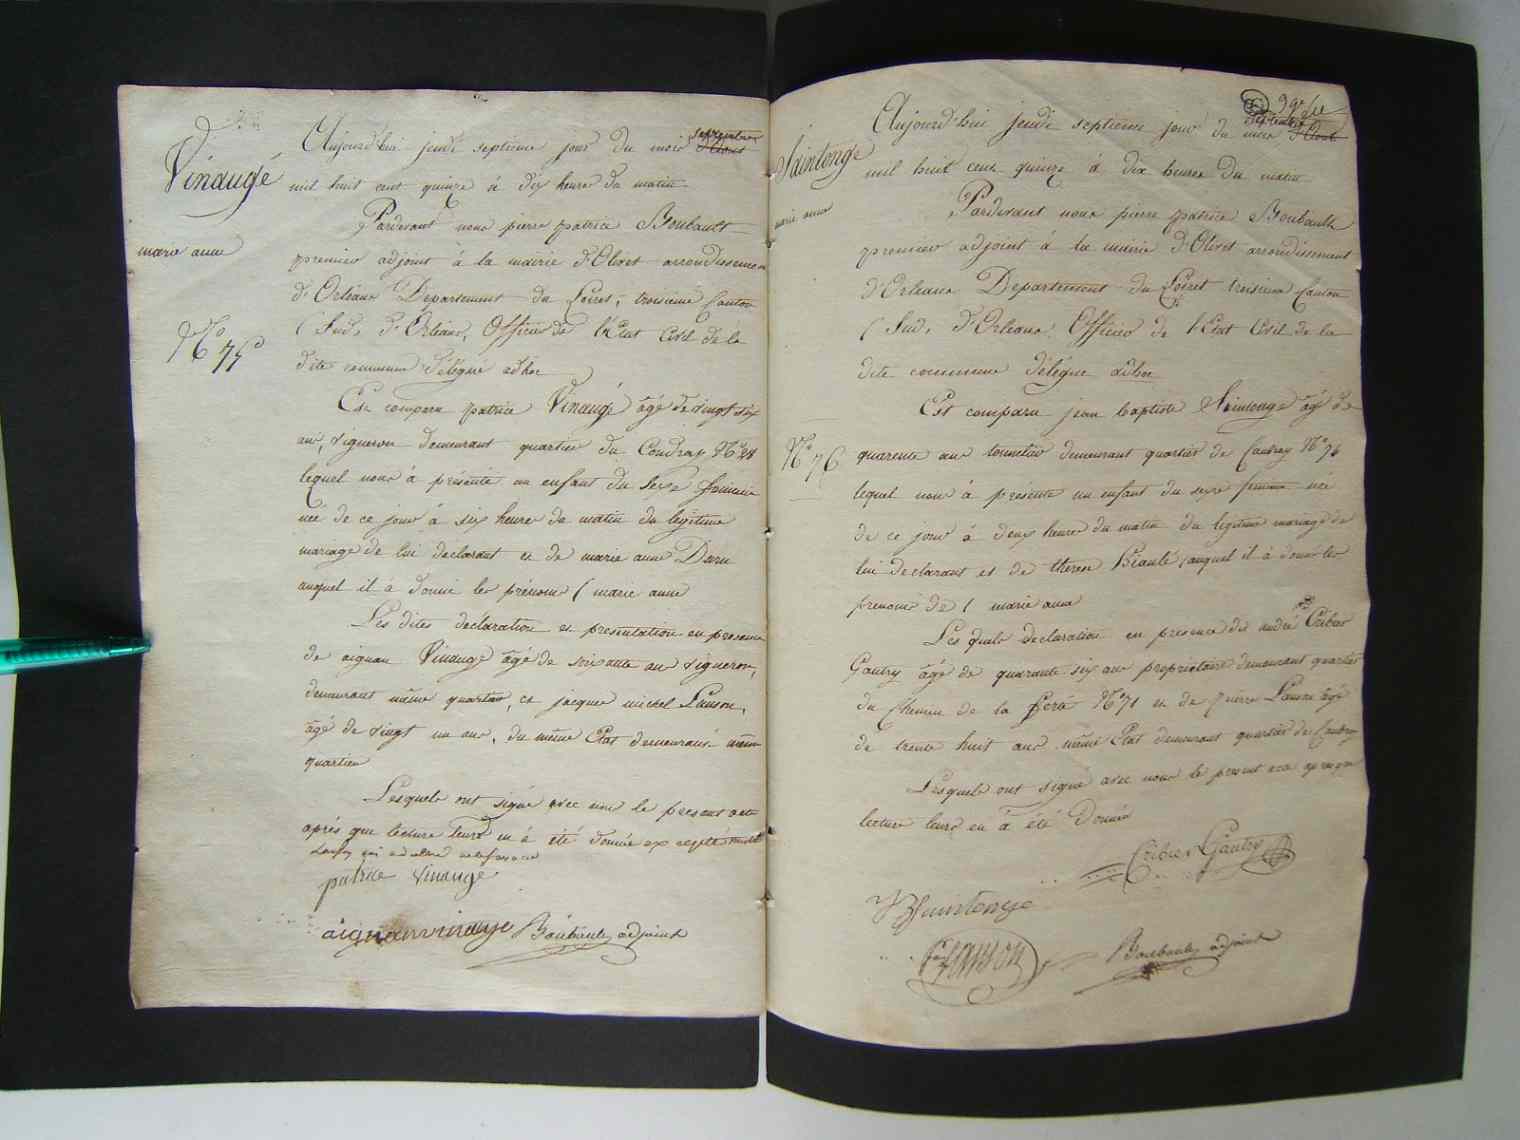 Vinaugé
marie anne
N° 75
Aujourd'hui jeudi septieme jour du mois septembre
mil huit cent quinze à dix heure du matin
Pardevant nous pierre patrice Boubault
premier adjoint à la mairie d'Olivet arrondissement
d'Orléans Departement du Loiret, troisieme Canton
(Sud, d'Orléans, Officier de l'Etat Civil de la
dite commune délégué adhoc
Est comparu patrice Vinaugé âgé de vingt six
ans, vigneron demeurant quartier du Coudray N°
lequel nous à présenté un enfant du Sexe féminin
née de ce jour à six heure du matin du légitime
mariage de lui declarant et de marie anne Daru
auquel il à donné les prénoms (marie anne
Les dites déclaration et presentation en presence
de aignan Vinaugé âgé de soixante ans vigneron,
demeurant même quartier, et jacque michel Lanson,
âgé de vingt un ans, du même Etat demeurant même
quartier
Lesquels ont signé avec nous le present acte
après que lecture leurs en à été donnée excepté
Lanson qui a declaré ne le savoir
patrice Vinauge
aignan vinauge Boubault adjoint
Saintonge
marie anne
N° 76
Aujourd'hui jeudi septieme jour du mois septembre
mil huit cent quinze à dix heures du matin
Pardevant nous pierre patrice Boubault
premier adjoint à la mairie d'Olivet arrondissement
d'Orléans Departement du Loiret troisieme Canton
(Sud, d'Orléans, Officier de l'Etat Civil de la
dite commune délégué adhoc
Est comparu jean baptiste Saintonge âgé de
quarente ans tonnelier demeurant quartier de Caubray N° 76
lequel nous à présenté un enfant du sexe feminin née
de ce jour à deux heures du matin du légitime mariage de
lui declarant et de therese Biaulé auquel il à donné les
prenoms de (marie anne
Les quels declaration en presence de andré Cribier
Gautry âgé de quarante six ans proprietaire demeurant quartier
du Chemin de la ferté N° 71 et de pierre Lanson âgé
de trente huit ans même Etat demeurant quartier de Caubray
Lesquels ont signé avec nous le present acte apres que
lecture leurs en à été donnée
Cribier Gautry
JB Saintonge
Lanson
Boubault adjoint